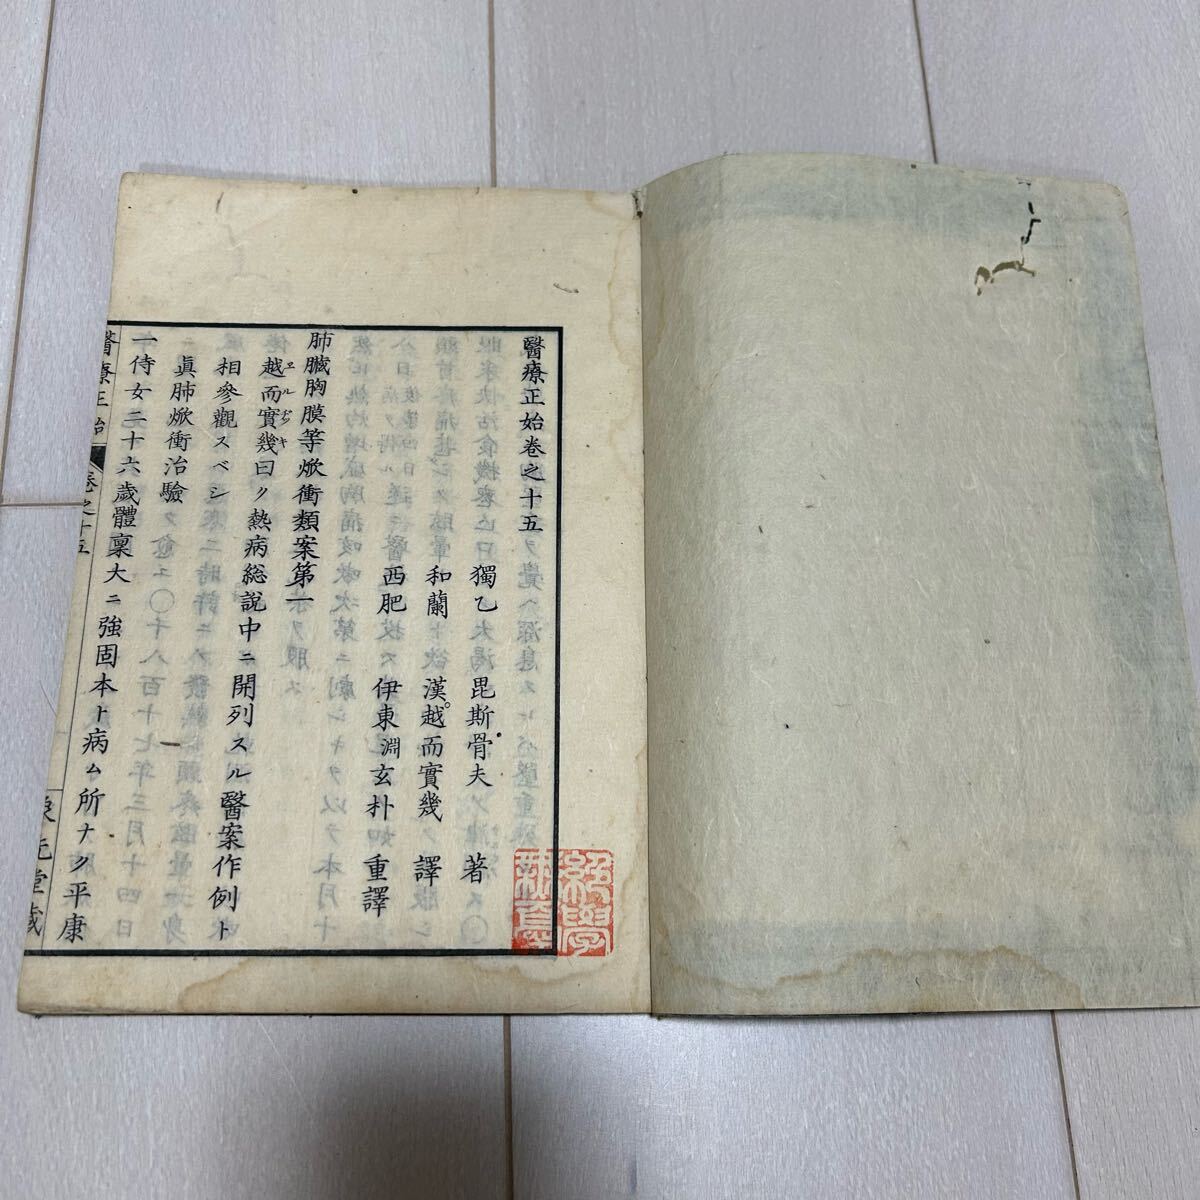 醫療正始卷之十五
獨乙 毘斯骨夫 著
和蘭 漢越而實幾 譯
西肥 伊東淵玄朴 重譯
肺臓胸膜等焮衝類案第一
越而實幾曰ク熱病総説中ニ開列スル醫案作例ト
エルヂキ
相參觀スベシ
眞肺焮衝治驗
一侍女二十六歳體稟大ニ強固本ト病ム所ナク平康
醫療正始 卷之十五
象先堂蔵